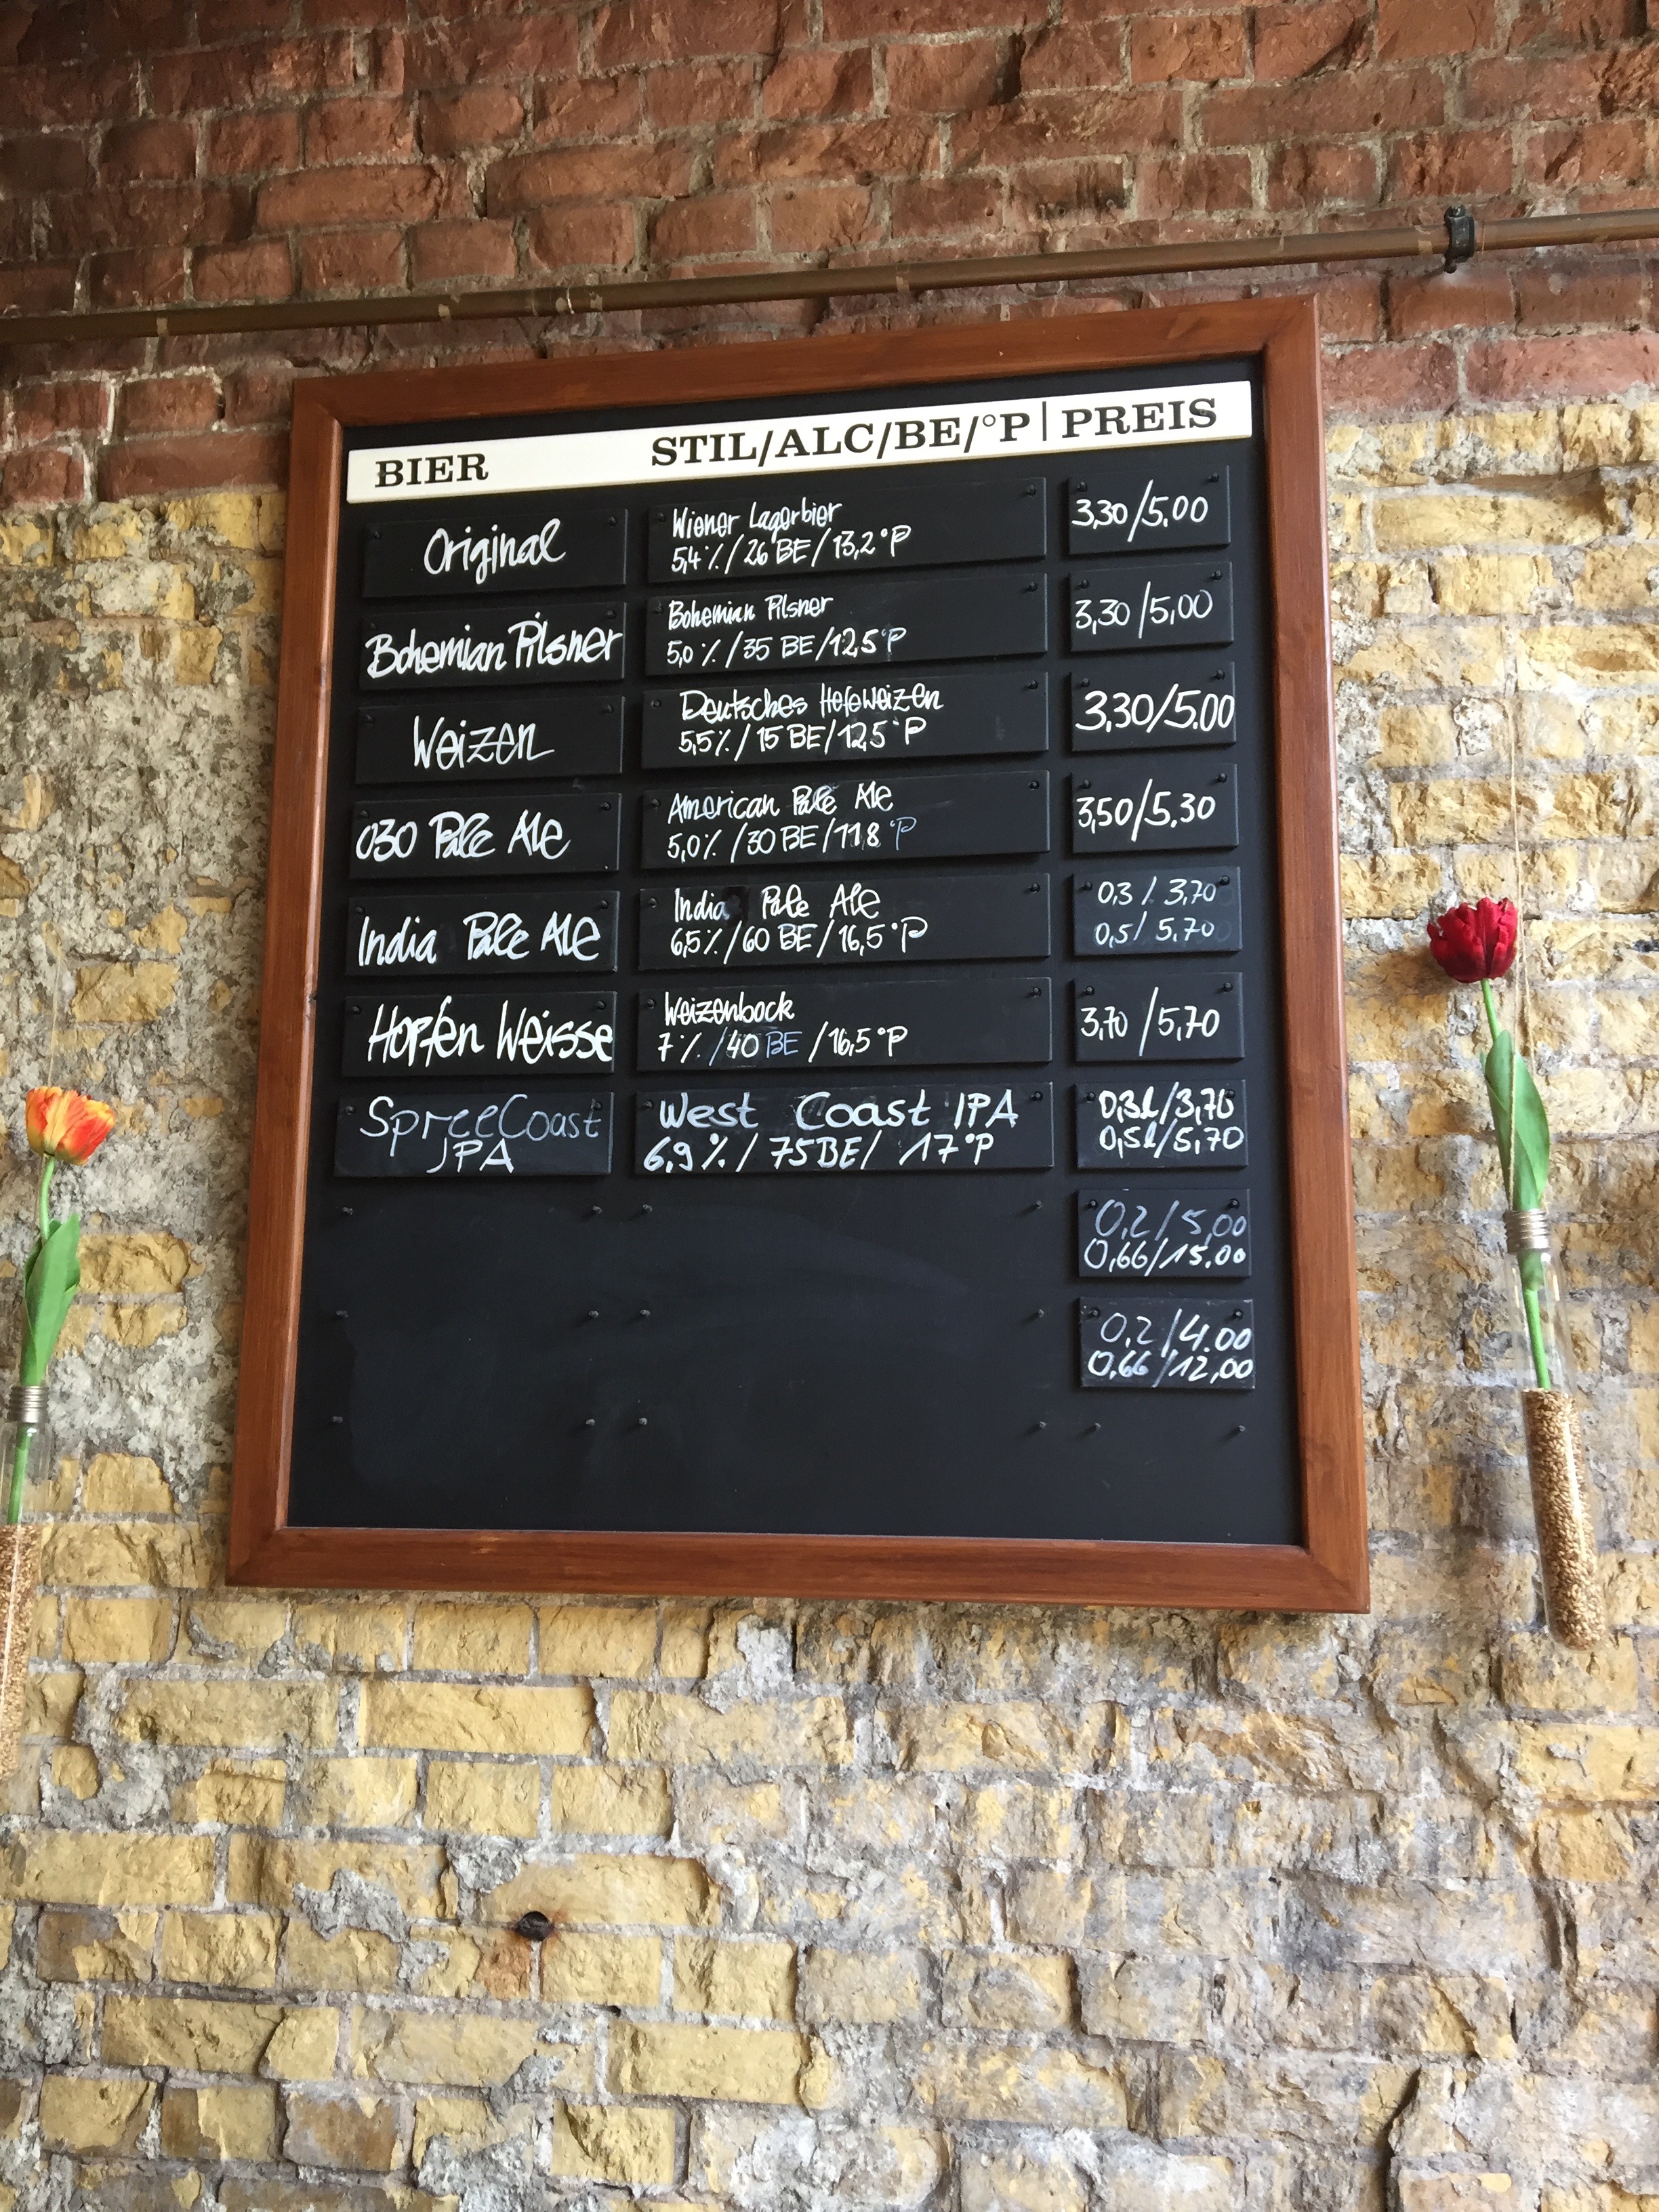 BIER STIL/ALC/BE/°P | PREIS
Original
Wiener Lagerbier
5,4%/26 BE/13,2°P
3,30/5.00
Bohemian Pilsner
Bohemian Pilsner
5,0%/35 BE/12,5°P
3,30/5,00
Weizen
Deutsches Hefeweizen
5,5%/15 BE/12,5°P
3,30/5.00
030 Pale Ale
American Pale Ale
5,0%/30 BE/11,8°P
3,50/5.30
India Pale Ale
India Pale Ale
6,5%/60 BE/16,5°P
0,3/3,70
0,5/5.70
Hopfen Weisse
Weizenbock
7%/40 BE/16,5°P
3,70/5,70
SpreeCoast
IPA
West Coast IPA
6,9%/75BE/17°P
0,3l/3,70
0,5l/5,70
0,2/5,00
0,66/15.00
0,2/4.00
0,66/12,00